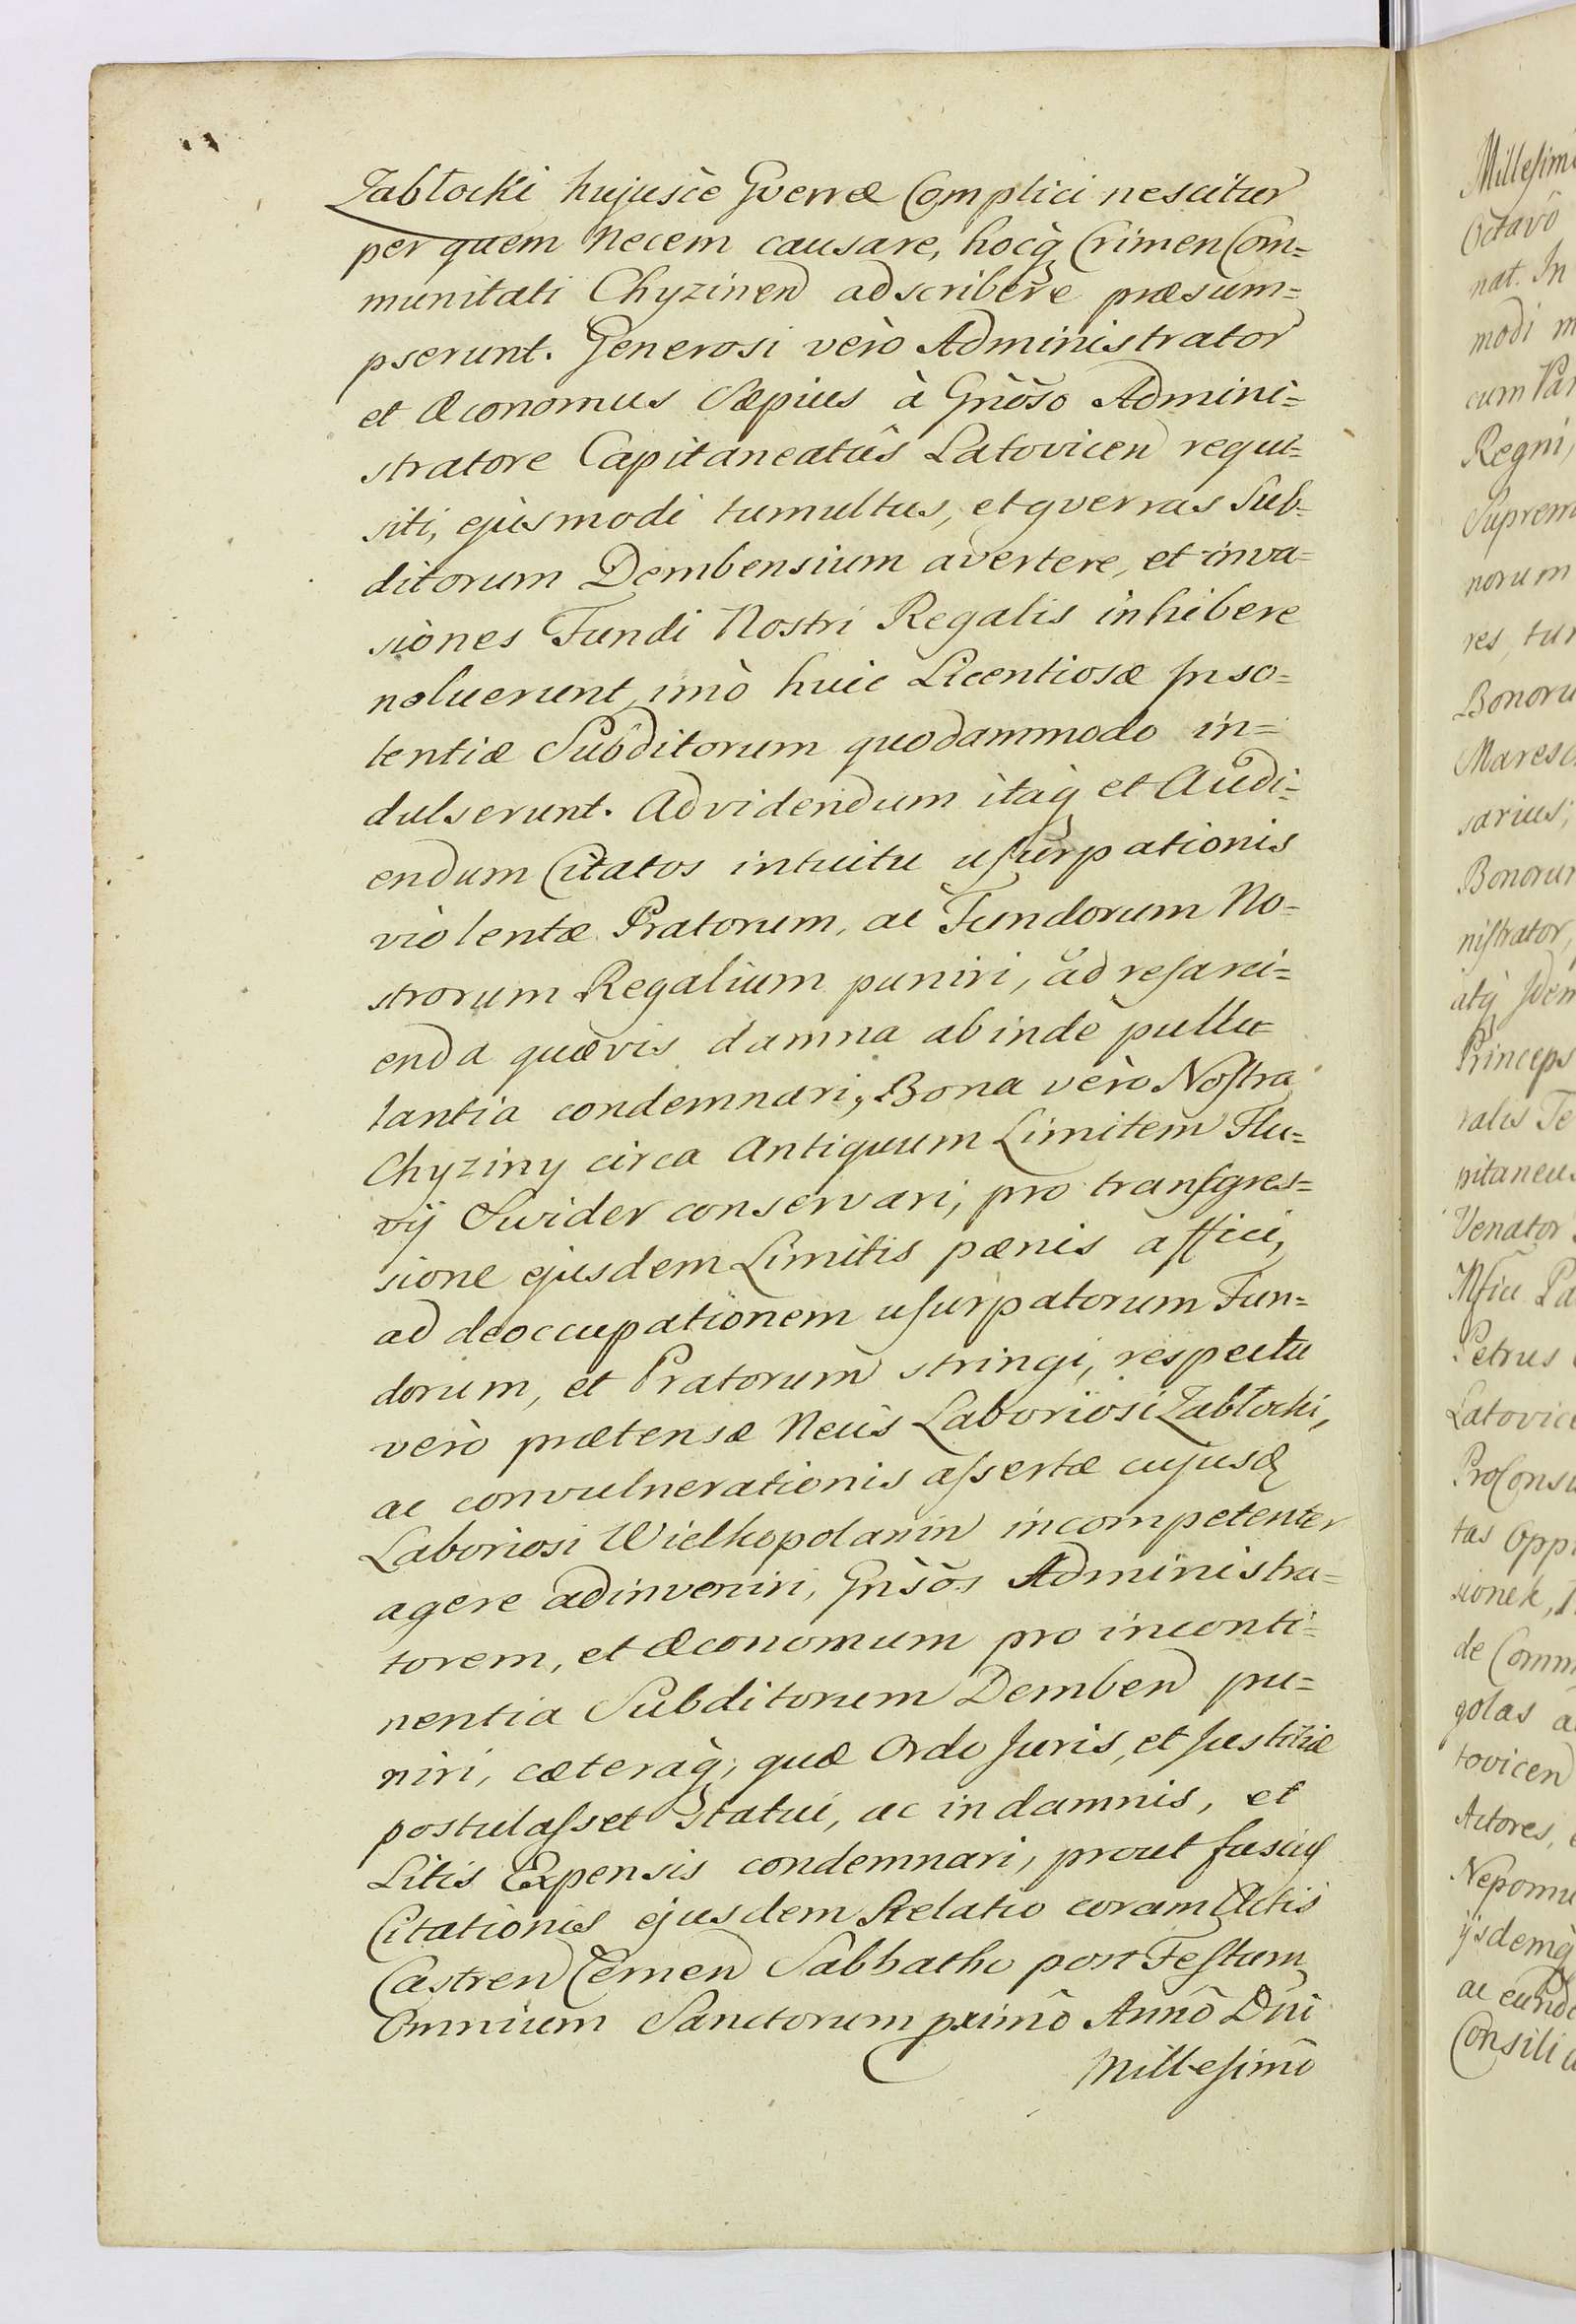 Zabłocki hujusce Gverræ Complici nescitur
per quem Necem causare, hocq̀ Crimen Com=
munitati Chyzinen adscribere præsum=
pserunt. Generosi verò Administrator
et Œconomus Sæpius à Gñoso Admini=
stratore Capitaneatûs Latovicen requi=
siti, ejusmodi tumultus, et gverras Sub=
ditorum Dembensium avertere, et inva=
siones Fundi Nostri Regalis inhibere
noluerunt, imò huic Licentiosæ Inso=
lentiæ Subditorum quodammodo in=
dulserunt. Ad videndum itaq̀ et Audi=
endum Citatos intuitu uſurpationis
violentæ Pratorum, ac Fundorum No=
strorum Regalium puniri, ad reſarci=
enda quævis damna abindè pullu=
lantia condemnari, Bona verò Noſtra
Chyziny circa Antiquum Limitem Flu=
vij Swider conservari, pro tranſgres=
sione ejusdem Limitis pænis affici,
ad deoccupationem uſurpatorum Fun=
dorum, et Pratorum stringi, respectu
verò prætensæ Necis Laboriosi Zabłocki,
ac convulnerationis aſsertæ cujusd
Laboriosi Wielkopolanin incompetenter
agere adinveniri, Gñsos Administra=
torem, et Œconomum pro inconti=
nentia Subditorum Demben pu=
niri, cæteraq̀, quæ Ordo Juris, et Justitiæ
postulaſset statui, ac in damnis, et
Litis Expensis condemnari, prout fusius
Citationis ejusdem Relatio coram Actis
Castren Cernen Sabbatho post Feſtum
Omnium Sanctorum pximô Annô Dñi
Milleſimô
Octavô
nat. In
modi
cum
Regni,
norum
res,
sarius,
niſtrator,
Princeps
Venator
Petrus
de
golas
tovicen
Actores,